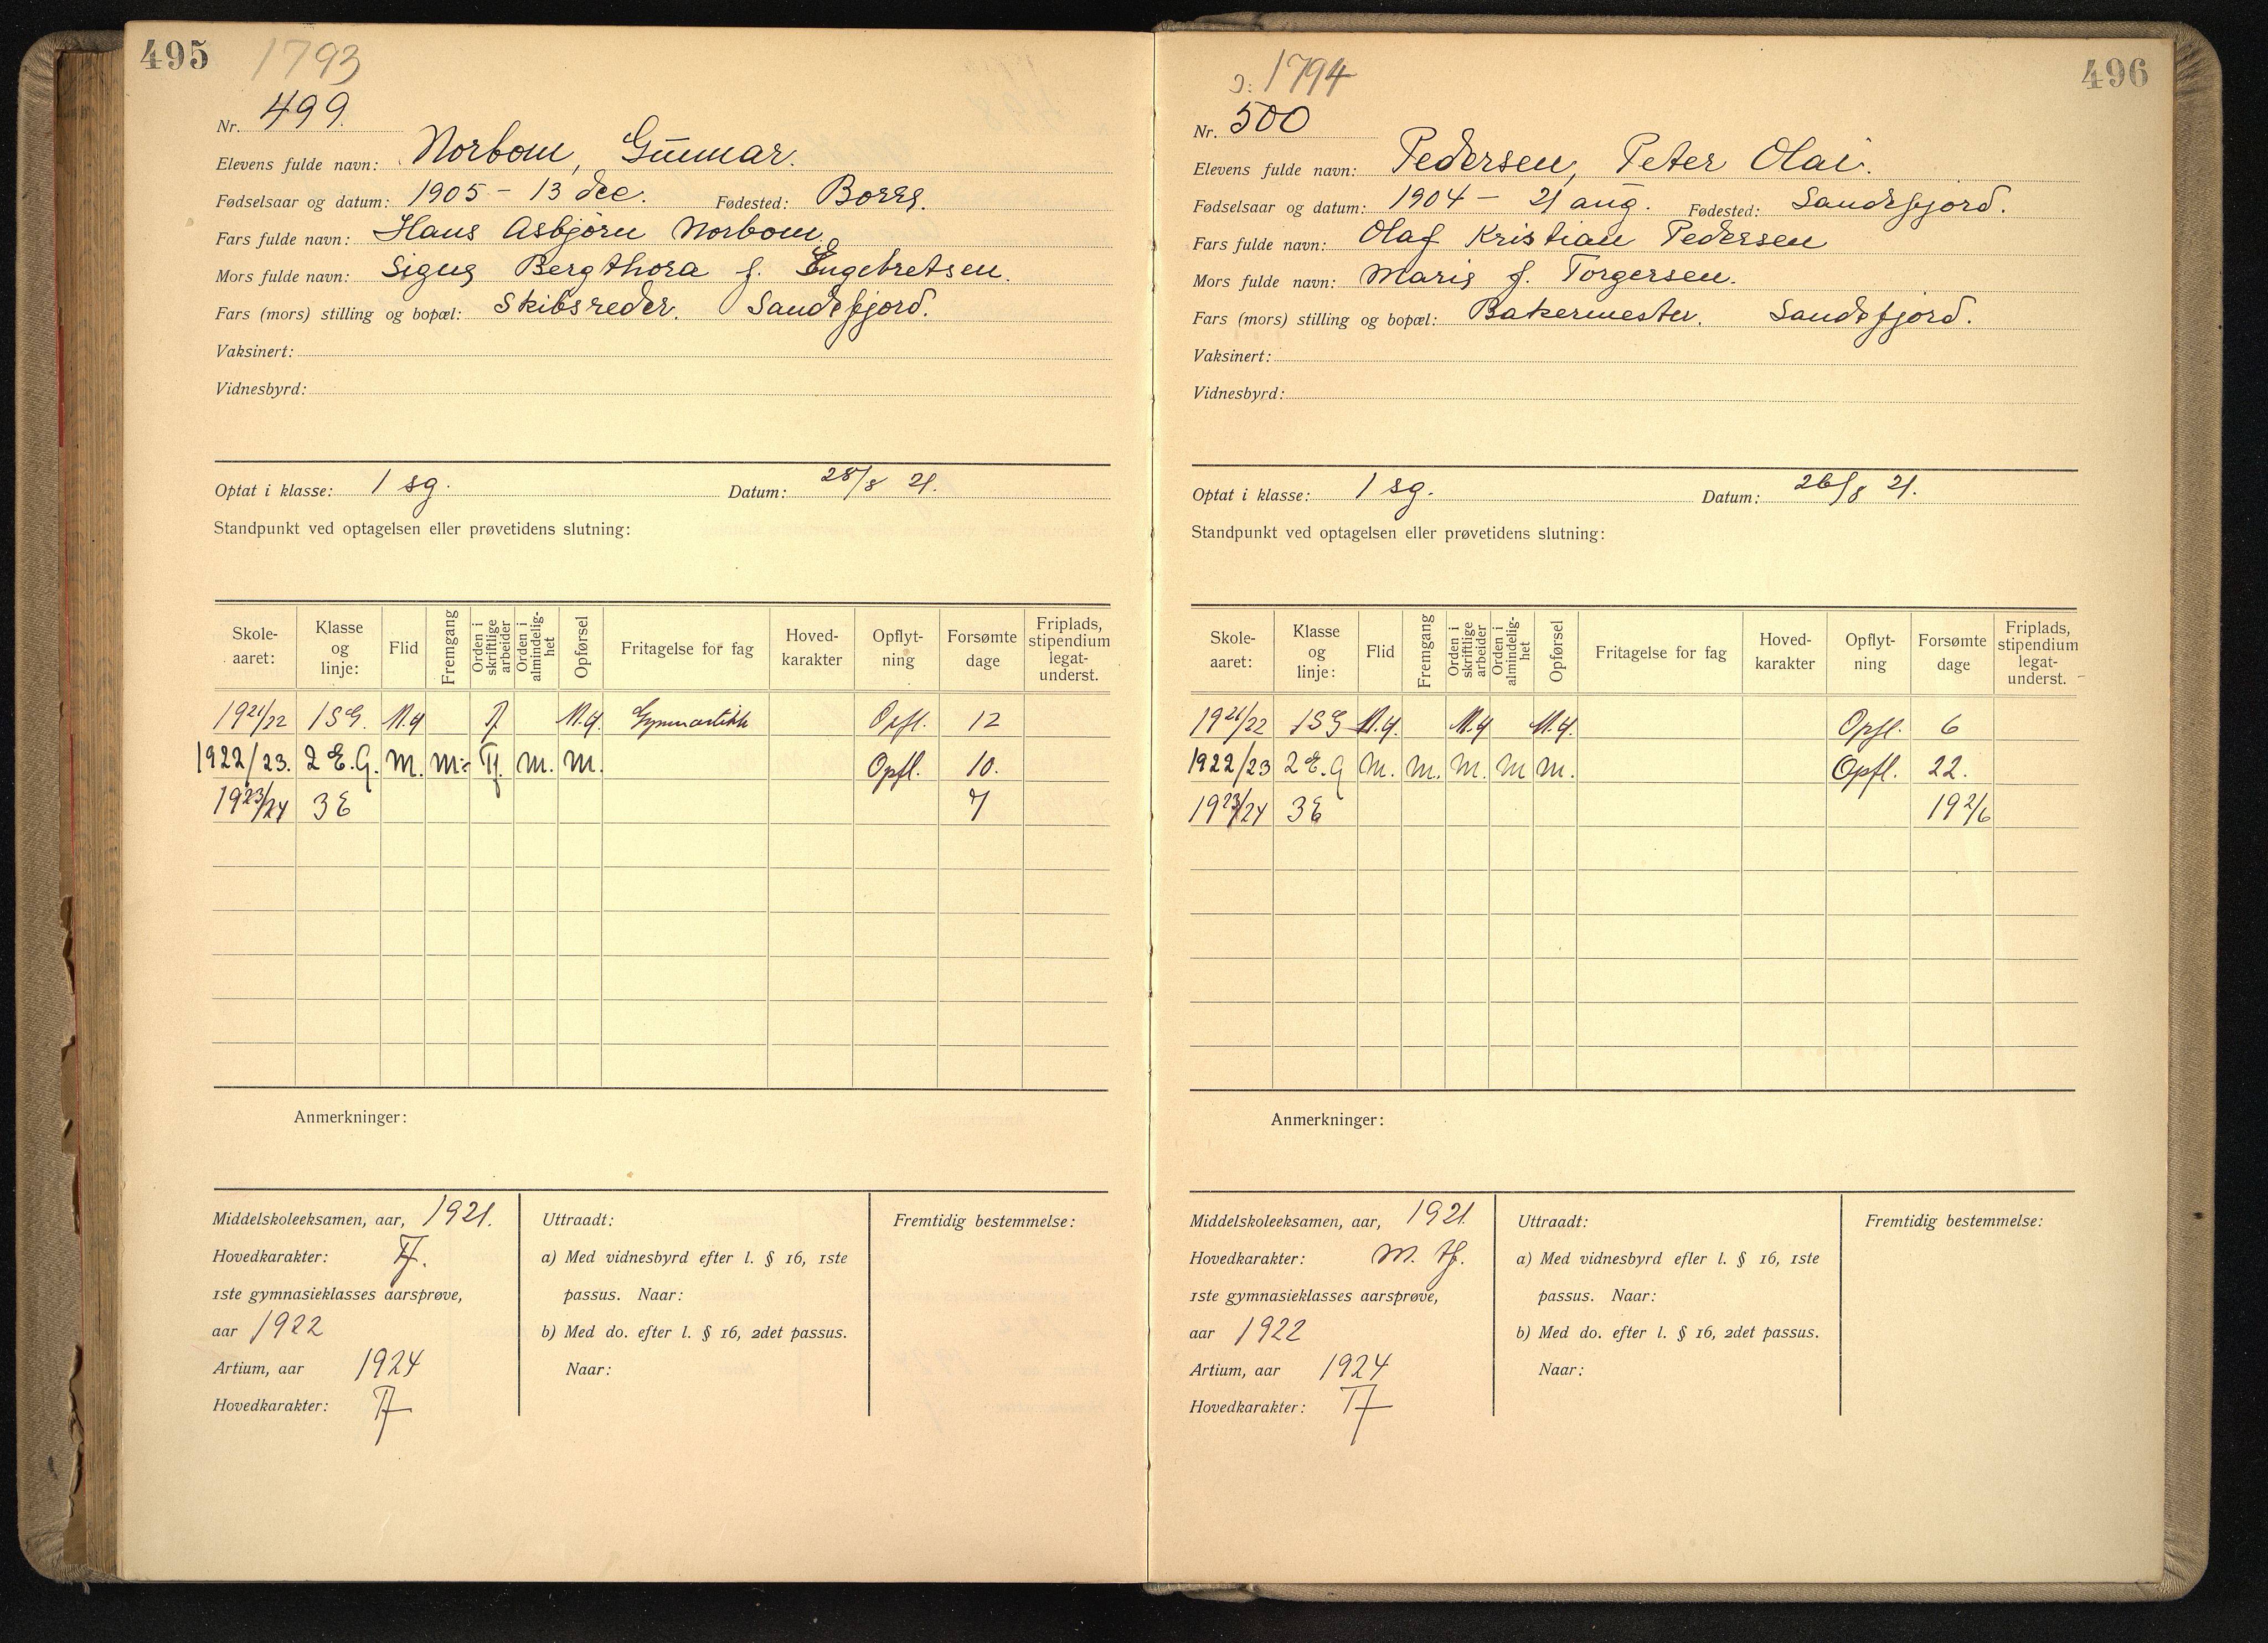 495 1793
Nr. 499.
Elevens fulde navn: Norbom, Gunnar.
Fødselsaar og datum: 1905 - 13 dec. Fødested: Borre.
Fars fulde navn: Hans Asbjørn Norbom
Mors fulde navn: Signe Bergthora f. Engebretsen.
Fars (mors) stilling og bopæl: Skibsreder. Sandefjord.
Vaksinert:
Vidnesbyrd:
Optat i klasse: 1 sg. Datum: 25/8 21.
Standpunkt ved optagelsen eller prøvetidens slutning:
Skole-aaret: Klasse og linje: Flid Fremgang Orden i skriftlige arbeider Orden i almindelig-het Opførsel Fritagelse for fag Hoved-karakter Opflyt-ning Forsømte dage Friplads, stipendium legat-underst.
1921/22 1SG. M.g T M.g. Gymnastikk Opfl. 12
1922/23. 2 E.G. M. M÷ Tf. M. M. Opfl. 10.
1923/24 3E 7
Anmerkninger:
Middelskoleeksamen, aar, 1921.
Hovedkarakter: Tf.
1ste gymnasieklasses aarsprøve,
aar 1922
Artium, aar 1924
Hovedkarakter: Tf
Uttraadt:
a) Med vidnesbyrd efter l. § 16, 1ste
passus. Naar:
b) Med do. efter l. § 16, 2det passus.
Naar:
Fremtidig bestemmelse:
1794 496
Nr. 500
Elevens fulde navn: Pedersen, Peter Olai.
Fødselsaar og datum: 1904 - 21 aug. Fødested: Sandefjord.
Fars fulde navn: Olaf Kristian Pedersen
Mors fulde navn: Marie f. Torgersen.
Fars (mors) stilling og bopæl: Bakermester. Sandefjord.
Vaksinert:
Vidnesbyrd:
Optat i klasse: 1 sg. Datum: 26/8 21.
Standpunkt ved optagelsen eller prøvetidens slutning:
Skole-aaret: Klasse og linje: Flid Fremgang Orden i skriftlige arbeider Orden i almindelig-het Opførsel Fritagelse for fag Hoved-karakter Opflyt-ning Forsømte dage Friplads, stipendium legat-underst.
1921/22 1SG M.g. M.g M.g. Opfl. 6
1922/23 2 E.G M. M. M. M M. Opfl. 22.
1923/24 3E 19 2/6
Anmerkninger:
Middelskoleeksamen, aar, 1921
Hovedkarakter: M. tf.
1ste gymnasieklasses aarsprøve,
aar 1922
Artium, aar 1924
Hovedkarakter: Tf
Uttraadt:
a) Med vidnesbyrd efter l. § 16, 1ste
passus. Naar:
b) Med do. efter l. § 16, 2det passus.
Naar:
Fremtidig bestemmelse: